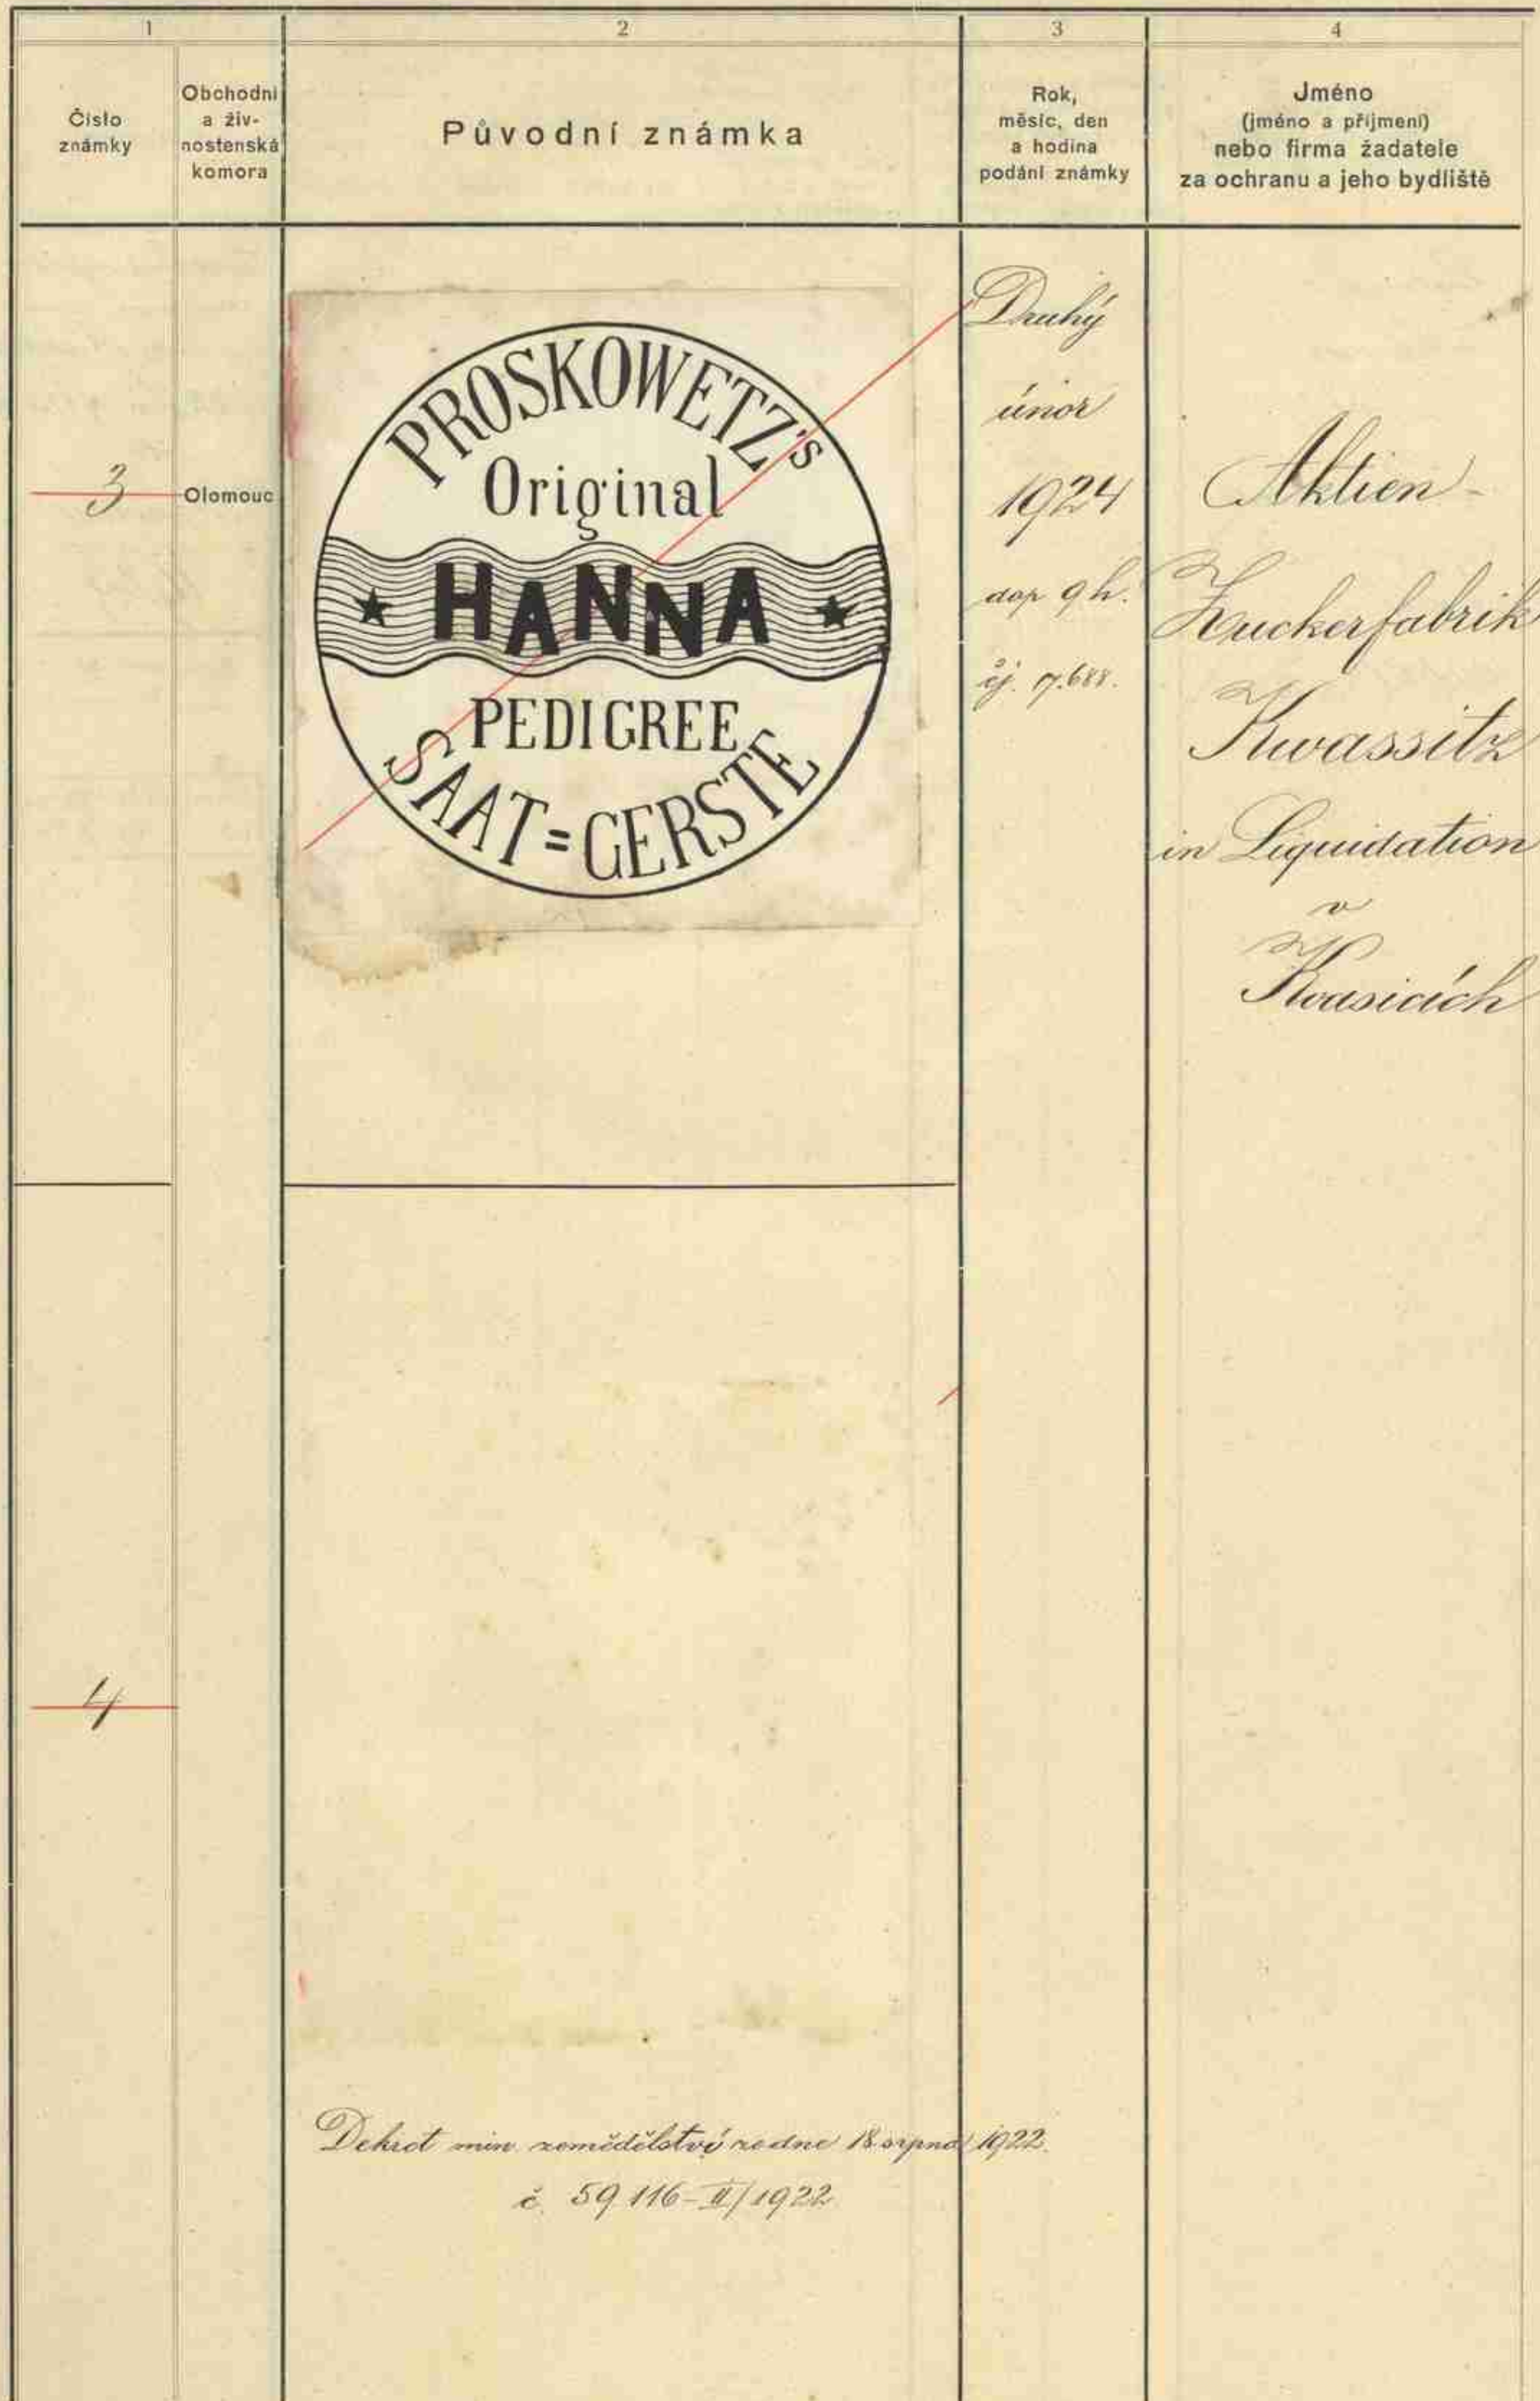 1
2
3
4
Číslo
známky
Obchodní
a živ-
nostenská
komora
Původní známka
Rok,
měsíc, den
a hodina
podání známky
Jméno
(jméno a příjmení)
nebo firma žadatele
za ochranu a jeho bydliště
3
Olomouc
PROSKOWETZ's
Original
HANNA
PEDIGREE
SAAT=GERSTE
Druhý
únor
1924
dop 9 h.
čj. 7.688.
Aktien-
Zuckerfabrik
Kwassitz
in Liquidation
v
Kvasicích
4
Dekret min. zemědělství ze dne 18 srpna 1922.
č. 59 116-II/1922